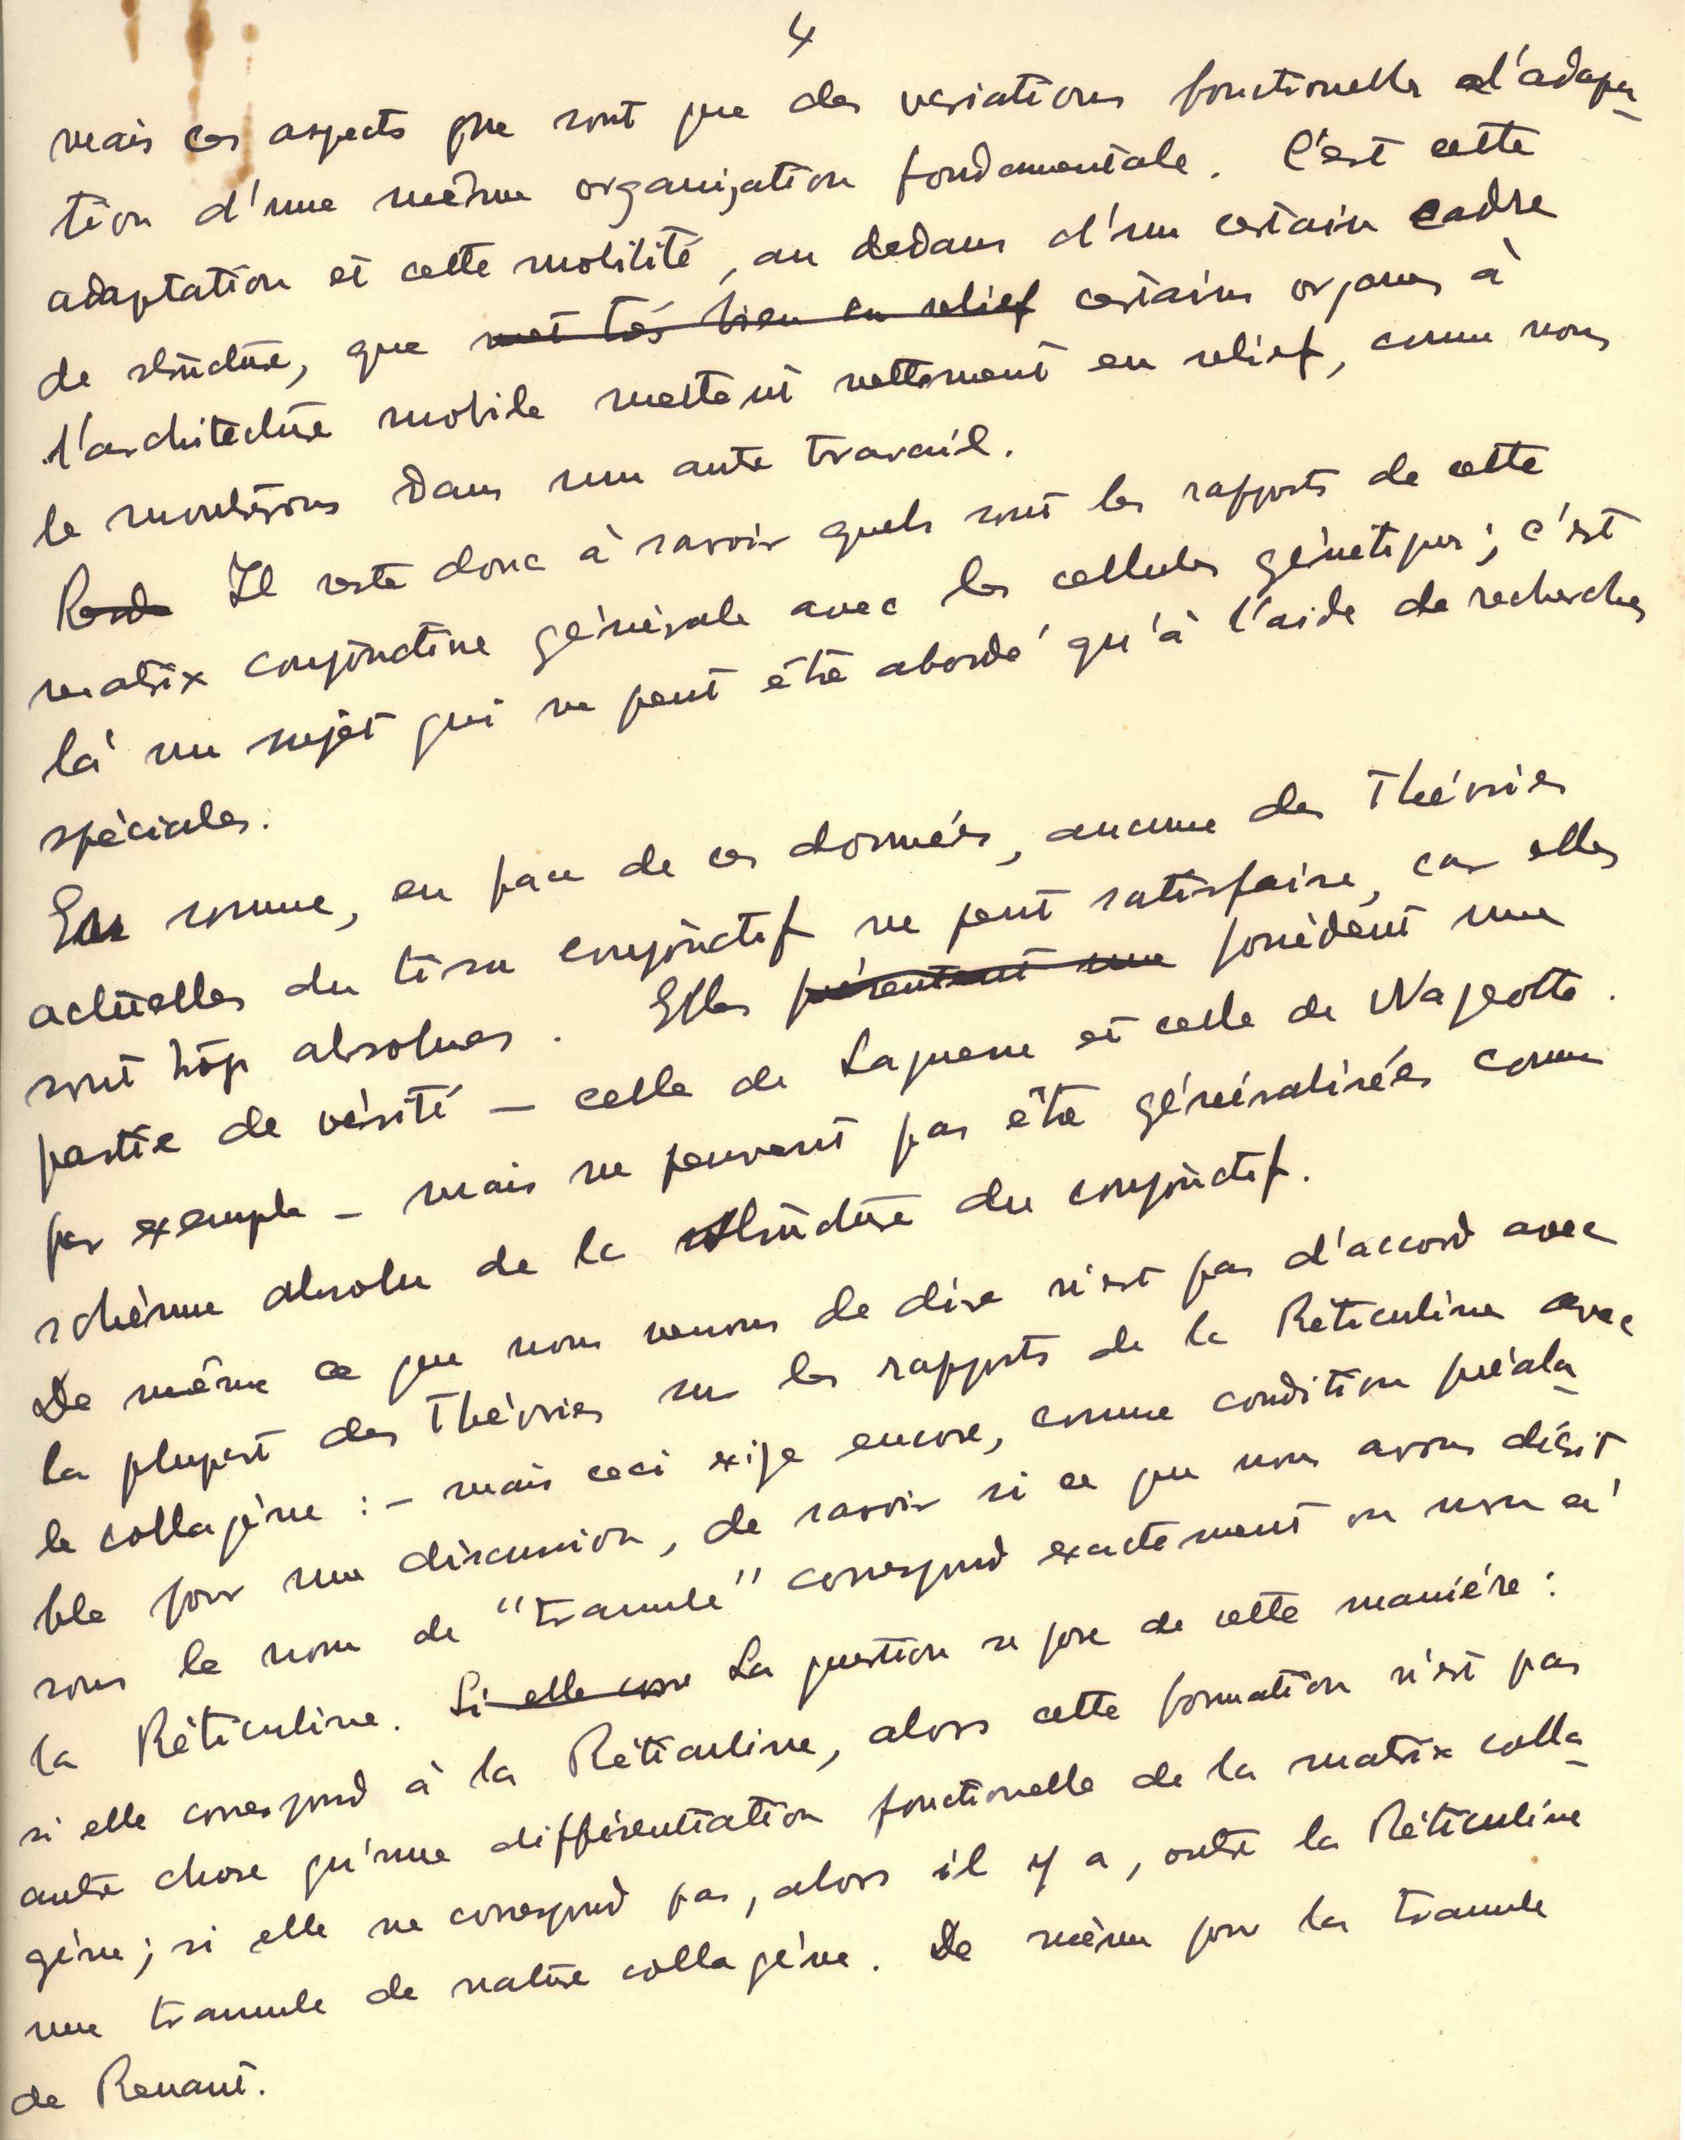 4
mais ces aspects ne sont que des variations fonctionelles d'adapta-
tion d'une même organisation fondamentale. C'est cette
adaptation et cette mobilité, au dedans d'un certain cadre
de structure, que met très bien en relief certains organes à
l'architecture mobile mettent nettement en relief, comme nous
le montrerons dans un autre travail.
Il reste donc à savoir quels sont les rapports de cette
matrix conjonctive générale avec les cellules génétiques; c'est
là un sujet qui ne peut être abordé qu'à l'aide de recherches
spéciales.
En somme, en face de ces données, aucune des théories
actuelles du tissu conjonctif ne peut satisfaire, car elles
sont trop absolues. Elles présentent une possèdent une
partie de vérité – celle de Laguesse et celle de Nageotte.
par exemple – mais ne peuvent pas être généralisées comme
schème absolu de la structure du conjonctif.
De même ce que nous venons de dire n'est pas d'accord avec
la plupart des théories sur les rapports de la Réticuline avec
le collagène : – mais ceci exige encore, comme condition préala-
ble pour une discussion, de savoir si ce que nous avons décrit
sous le nom de "tramule" correspond exactement ou non à
la Réticuline. Si elle corre La question se pose de cette manière :
si elle correspond à la Réticuline, alors cette formation n'est pas
autre chose qu'une différentiation fonctionelle de la matrix colla-
gène; si elle ne correspond pas, alors il y a, outre la Réticuline
une tramule de nature collagène. De même pour la tramule
de Renaut.